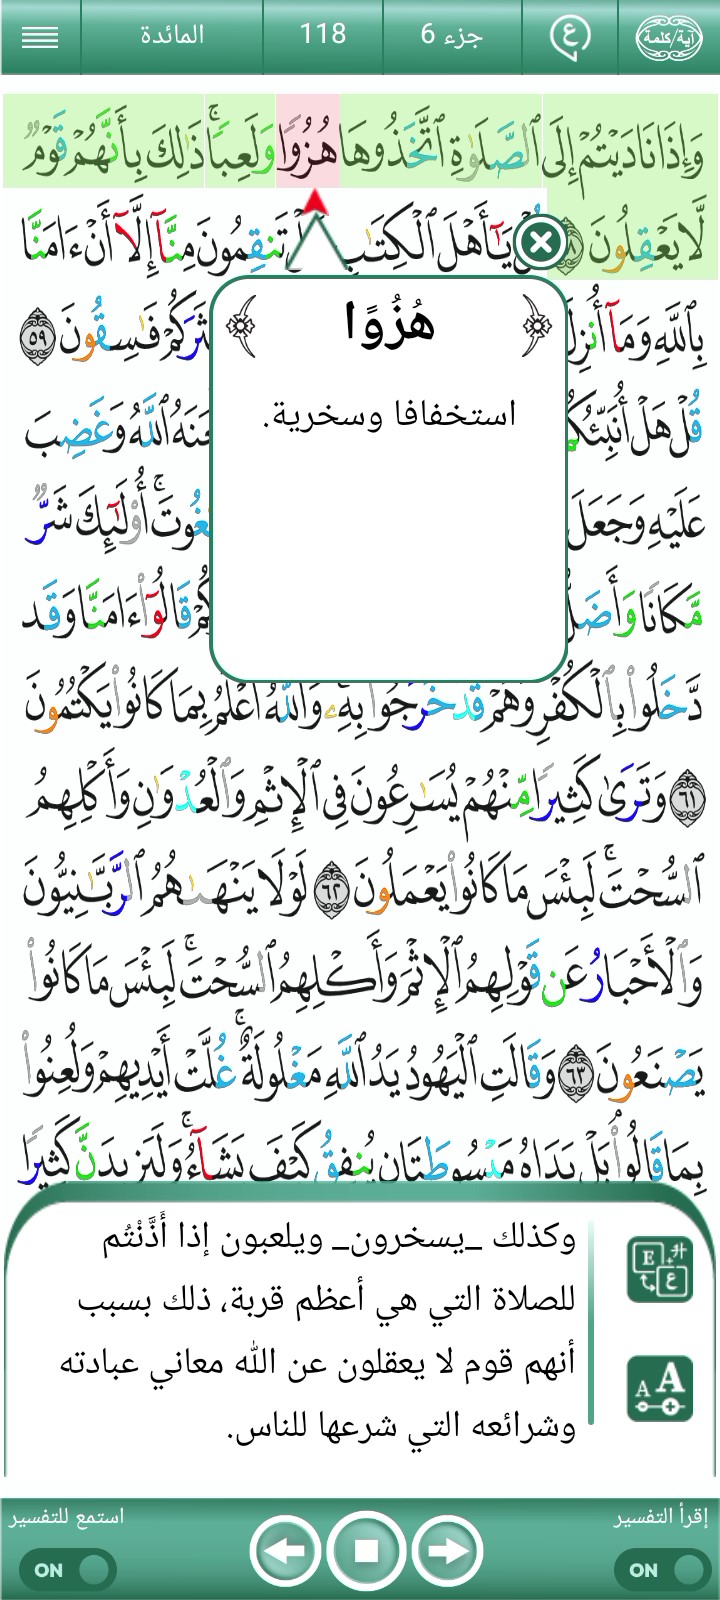 آية/كلمة
ع
جزء 6
118
المائدة
وَإِذَا نَادَيْتُمْ إِلَى ٱلصَّلَوٰةِ ٱتَّخَذُوهَا هُزُوًا وَلَعِبًا ۚ ذَٰلِكَ بِأَنَّهُمْ قَوْمٌ
لَّا يَعْقِلُونَ يَـٰٓأَهْلَ ٱلْكِتَـٰبِ تَنقِمُونَ مِنَّآ إِلَّآ أَنْ ءَامَنَّا
بِٱللَّهِ وَمَآ أُنزِلَ فَـٰسِقُونَ ٥٩
قُلْ هَلْ ٱللَّهُ وَغَضِبَ
عَلَيْهِ وَجَعَلَ أُو۟لَـٰٓئِكَ شَرٌّ
مَّكَانًا قَالُوٓا۟ ءَامَنَّا وَقَد
دَّخَلُوا۟ بِٱلْكُفْرِ وَهُمْ قَدْ خَرَجُوا۟ بِهِۦ ۚ وَٱللَّهُ أَعْلَمُ بِمَا كَانُوا۟ يَكْتُمُونَ
٦١ وَتَرَىٰ كَثِيرًا مِّنْهُمْ يُسَـٰرِعُونَ فِى ٱلْإِثْمِ وَٱلْعُدْوَٰنِ وَأَكْلِهِمُ
ٱلسُّحْتَ ۚ لَبِئْسَ مَا كَانُوا۟ يَعْمَلُونَ ٦٢ لَوْلَا يَنْهَىٰهُمُ ٱلرَّبَّـٰنِيُّونَ
وَٱلْأَحْبَارُ عَن قَوْلِهِمُ ٱلْإِثْمَ وَأَكْلِهِمُ ٱلسُّحْتَ ۚ لَبِئْسَ مَا كَانُوا۟
يَصْنَعُونَ ٦٣ وَقَالَتِ ٱلْيَهُودُ يَدُ ٱللَّهِ مَغْلُولَةٌ ۚ غُلَّتْ أَيْدِيهِمْ وَلُعِنُوا۟
بِمَا قَالُوا۟ ۘ بَلْ يَدَاهُ مَبْسُوطَتَانِ يُنفِقُ كَيْفَ يَشَآءُ ۚ وَلَيَزِيدَنَّ كَثِيرًا
هُزُوًا
استخفافا وسخرية.
وكذلك _يسخرون_ ويلعبون إذا أَذَّنْتُم
للصلاة التي هي أعظم قربة، ذلك بسبب
أنهم قوم لا يعقلون عن الله معاني عبادته
وشرائعه التي شرعها للناس.
E ع
A A
إقرأ التفسير
ON
استمع للتفسير
ON